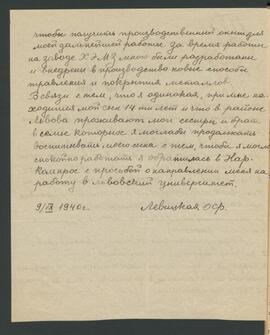 чтобы получить производственный опыт для
моей дальнейшей работы. За время работы
на заводе ХЭМЗ мною были разработаны
и внедрены в производство новые способы
травления и покрытия металлов.
В связи с тем, что я одинокая, при мне на-
ходится мой сын 14ти лет и что в районе
Львова проживают мои сестры и брат
в семье которых я могла бы продолжать
воспитывать моего сына с тем, чтобы я могла
спокойно работать я обратилась в Нар-
компрос с просьбой о направлении меня на
работу в Львовский университет.
9/IX 1940 г. Левицкая О.Ф.